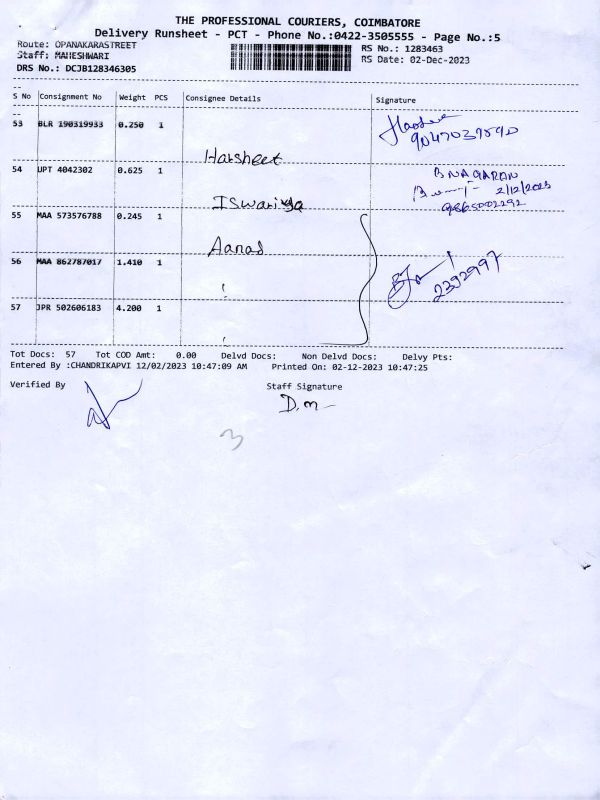 THE PROFESSIONAL COURIERS, COIMBATORE
Delivery Runsheet - PCT - Phone No.:0422-3505555 - Page No.:5
Route: OPANAKARASTREET
Staff: MAHESHWARI
DRS No.: DCJB128346305
RS No.: 1283463
RS Date: 02-Dec-2023
S No Consignment No Weight PCS Consignee Details Signature
53 BLR 190319933 0.250 1 Harsheet
54 UPT 4042302 0.625 1 ISwariya B NAGARAN
2/12/2023
55 MAA 573576788 0.245 1 Aanad
56 MAA 862787017 1.410 1 2392997
57 JPR 502606183 4.200 1
Tot Docs: 57 Tot COD Amt: 0.00 Delvd Docs: Non Delvd Docs: Delvy Pts:
Entered By :CHANDRIKAPVI 12/02/2023 10:47:09 AM Printed On: 02-12-2023 10:47:25
Verified By Staff Signature
D.m
3